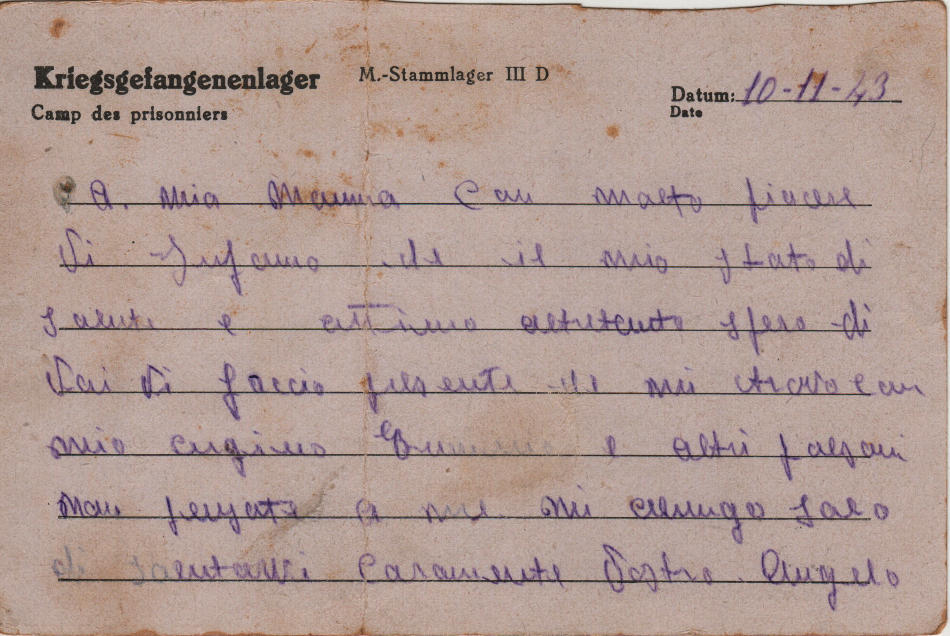 Kriegsgefangenenlager M.-Stammlager III D
Camp des prisonniers
Datum: 10-11-43
Date
A. mia Mamma Con molto piacere
Vi Informo che il mio stato di
salute e ottimo altretanto spero di
Voi Vi faccio presente che mi trovo con
mio cugino e altri paesani
Non pensate a me mi alungo solo
di salutarvi Caramente Vostro Angelo